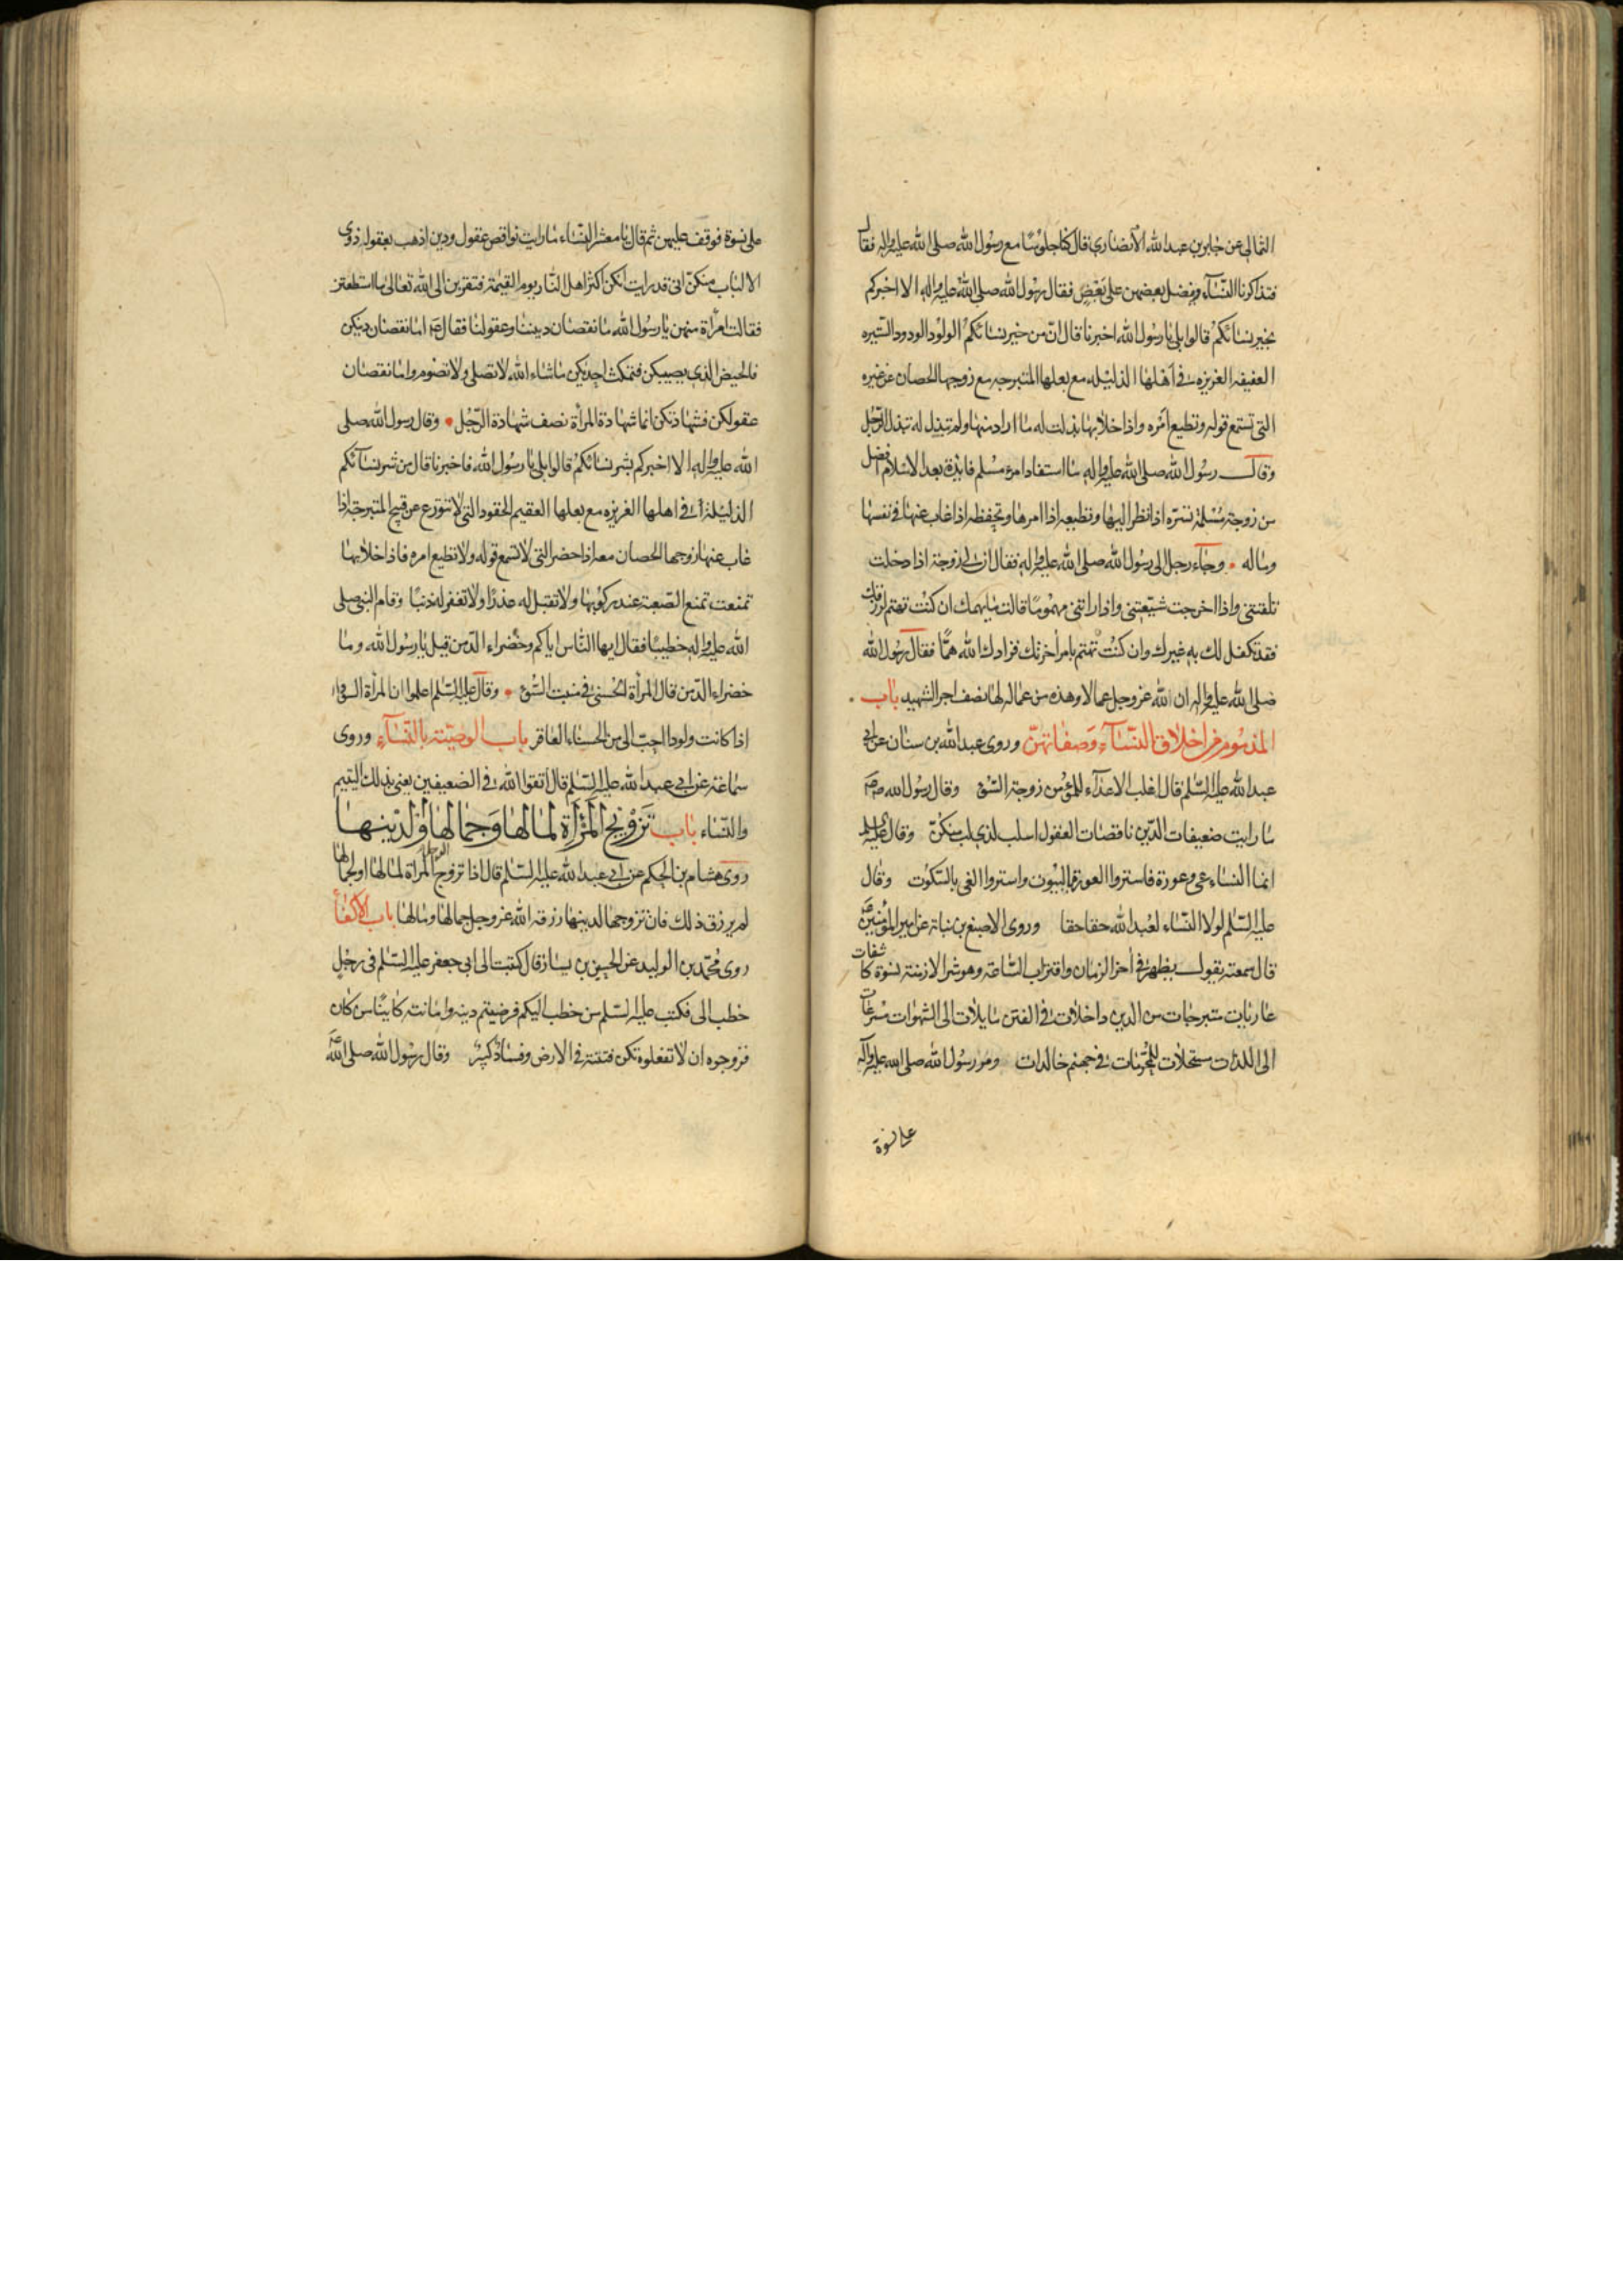 الثمالى عن جابر بن عبد الله الأنصارى قال كنا جلوسا مع رسول الله صلى الله عليه واله فقال
فتذاكرنا النسآء وفضل بعضهن على بعض فقال رسول الله صلى الله عليه واله الا اخبركم
بخير نسائكم قالوا بلى يا رسول الله اخبرنا قال ان من خير نسائكم الولود الودود الستيره
العفيفه العزيزه فى اهلها الذليله مع بعلها المتبرجه مع زوجها الحصان عن غيره
التى تستمع قوله وتطيع امره واذا خلا بها بذلت له ما اراد منها ولم تبذل له تبذل الرجل
وقال رسول الله صلى الله عليه واله ما استفاد امرء مسلم فايدة بعد الاسلام افضل
من زوجة مسلمة تسره اذا نظر اليها وتطيعه اذا امرها وتحفظه اذا غاب عنها فى نفسها
وماله • وجاء رجل الى رسول الله صلى الله عليه واله فقال ان لى زوجة اذا دخلت
تلقتنى واذا اخرجت شيعتنى واذا راتنى مهموما قالت ما يهمك ان كنت تهتم لرزقك
فقد تكفل لك به غيرك وان كنت تهتم بامر آخرتك فزادك الله همّا فقال رسول الله
صلى الله عليه واله ان لله عز وجل عمالا وهذه من عماله لها نصف اجر الشهيد باب
المذموم من اخلاق النسآء وصفاتهنّ وروى عبد الله بن سنان عن ابى
عبد الله عليه السلم قال اغلب الاعدآء للمؤمن زوجة السّوء وقال رسول الله ص
ما رايت ضعيفات الدين ناقصات العقول اسلب لذى لب منكنّ وقال عليه السلم
انما النساء عى وعورة فاستروا العورة بالبيوت واستروا العى بالسكوت وقال
عليه السلم لولا النساء لعبد الله حقا حقا وروى الاصبغ بن نباتة عن امير المؤمنين
قال سمعته يقول يظهر فى اخر الزمان واقتراب الساعة وهو شر الازمنة نسوة كاشفات
عاريات متبرجات من الدين داخلات فى الفتن مايلات الى الشهوات مسرعات
الى اللذات مستحلات للمحرمات فى جهنم خالدات ومر رسول الله صلى الله عليه وآله
على نسوة
على نسوة فوقف عليهن ثم قال يا معشر النساء ما رايت نواقص عقول ودين اذهب بعقول ذوى
الالباب منكنّ انى قد رايت انكن اكثر اهل النار يوم القيمة فتقربن الى الله تعالى ما استطعتن
فقالت امرأة منهن يا رسول الله ما نقصان ديننا وعقولنا فقال ع اما نقصان دينكن
فالحيض الذى يصيبكن فتمكث احديكن ما شاء الله لا تصلى ولا تصوم واما نقصان
عقولكن فشهادتكن انما شهادة المرأة نصف شهادة الرّجل • وقال رسول الله صلى
الله عليه واله الا اخبركم بشر نسائكم قالوا بلى يا رسول الله فاخبرنا قال من شر نسآئكم
الذليلة فى اهلها العزيزه مع بعلها العقيم الحقود التى لا تتورع عن قبيح المتبرجة اذا
غاب عنها زوجها الحصان معه اذا حضر التى لا تسمع قوله ولا تطيع امره فاذا خلا بها
تمنعت تمنع الصعبة عند ركوبها ولا تقبل له عذرًا ولا تغفر له ذنبًا وقام النبى صلى
الله عليه واله خطيبًا فقال ايها الناس اياكم وخضراء الدّمن قيل يا رسول الله وما
خضراء الدّمن قال المرأة الحسنى فى منبت السّوء • وقال عليه السّلم اعلموا ان المرأة السوداء
اذا كانت ولودا احبّ الى من الحسناء العاقر باب الوصيّته بالنّسآء وروى
سماعة عن ابى عبد الله عليه السّلم قال اتقوا الله فى الضعيفين يعنى بذلك اليتيم
والنّساء باب تزويج المرأة لمالها وجمالها ولدينها
روى هشام بن الحكم عن ابى عبد الله عليه السّلم قال اذا تزوج الرجل المرأة لمالها او لجمالها
لم يرزق ذلك فان تزوجها لدينها رزقه الله عز وجل جمالها ومالها باب الاكفاء
روى محمّد بن الوليد عن الحسين بن بشار قال كتبت الى ابى جعفر عليه السّلم فى رجل
خطب الى فكتب عليه السّلم من خطب اليكم فرضيتم دينه وامانته كاينًا من كان
فزوجوه ان لا تفعلوه تكن فتنة فى الارض وفساد كبير وقال رسول الله صلى الله